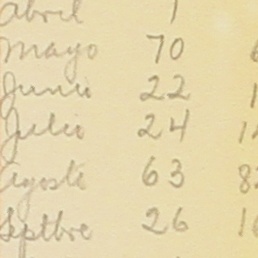 Abril 1
Mayo 70
Junio 22
Julio 24
Agosto 63
Septbre 26